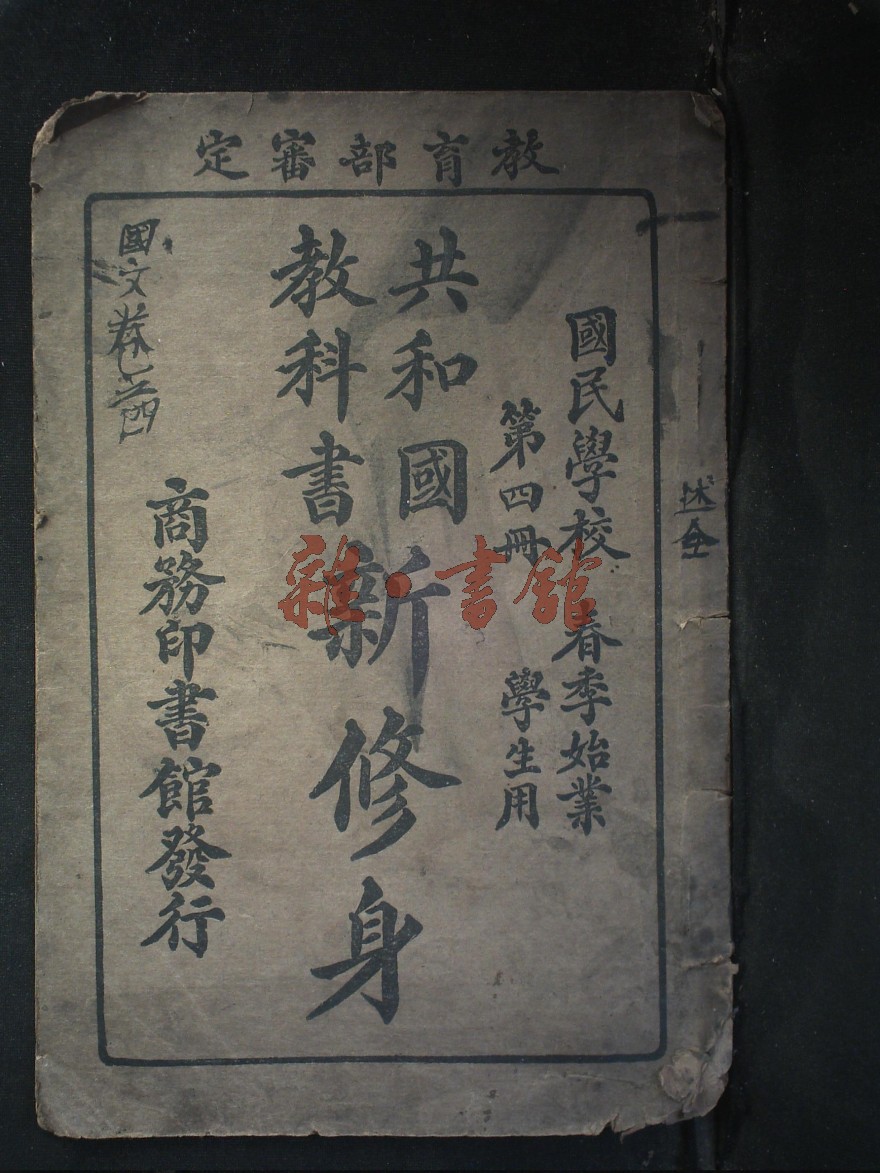 教育部審定
國民學校 春季始業
第四冊 學生用
共和國
教科書
新修身
商務印書館發行
國文卷之四
雜·書館